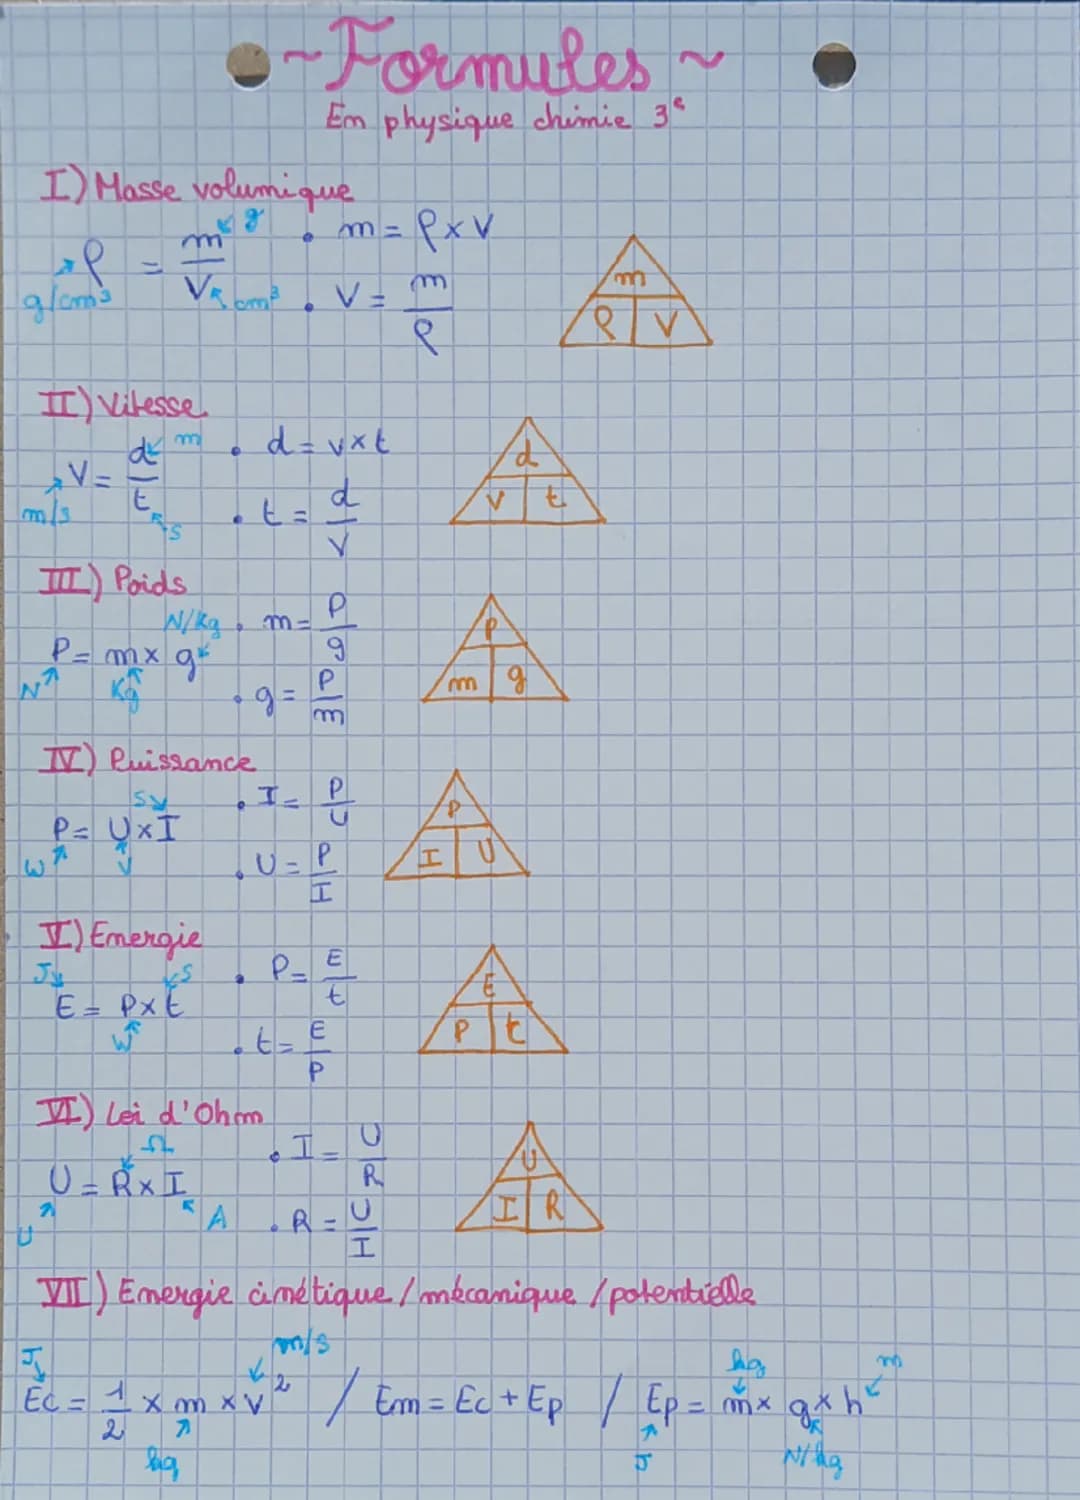 ~ Formules ~
En physique chimie 3e
I) Masse volumique
ρ = m/V
g/cm³
g
cm³
• m = ρ x V
• V = m/ρ
m
ρ V
II) Vitesse
V = d/t
m/s
m
s
• d = v x t
• t = d/V
d
V t
III) Poids
P = m x g
N
Kg
N/Kg
• m = P/g
• g = P/m
P
m g
IV) Puissance
P = U x I
W
V
S
• I = P/U
• U = P/I
P
I U
V) Energie
E = P x t
J
W
S
• P = E/t
• t = E/P
E
P t
VI) Loi d'Ohm
U = R x I
U
Ω
A
• I = U/R
• R = U/I
U
I R
VII) Energie cinétique / mécanique / potentielle
J
m/s
kg
m
Ec = 1/2 x m x v² / Em = Ec + Ep / Ep = m x g x h
kg
J
N/kg